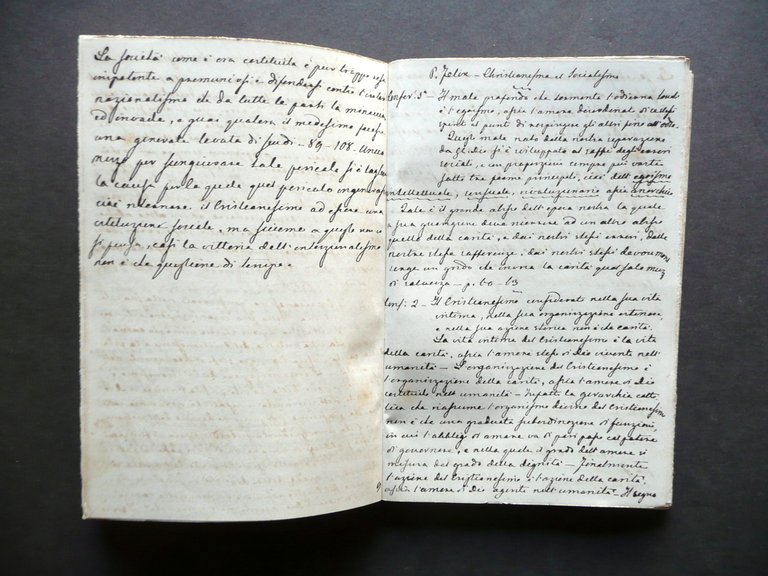 La società come è ora costituita è pur troppo
impotente a premunirsi e difendersi contro l'inter
nazionalismo che da tutte le parti la minaccia
ed invade, a quei qualora il medesimo facesse
una generale levata di scudi - 89-108. Unico
mezzo per iscongiurare tale pericolo si è
la causa per la quale quel pericolo
cioè ritornare il Cristianesimo ad essere una
istituzione sociale, ma siccome a questo non
si pensa, così la vittoria dell'internazionalismo
non è che questione di tempo.
P. Felix - Christianesimo e Socialismo
Confer. 1ª - Il male profondo che tormenta l'odierna
è l'egoismo, ossia l'amore disordinato di se stessi
spinto al punto di respingere gli altri fino all'odio.
Questo male nato dalla nostra separazione
da Dio si è sviluppato al soffio degli errori
sociali, e in proporzioni sempre più vaste
sotto tre forme principali, cioè dell'egoismo
intellettuale, sensuale, rivoluzionario ossia anarchico
- Tale è il grande abisso dell'epoca nostra la quale
a sua guarigione deve invocare ad un altro abisso
quello della carità, e dai nostri stessi errori, dalle
nostre stesse sofferenze, dai nostri stessi
un grido che invoca la carità qual solo mezzo
di salvezza - p. 60-63
Conf: 2 - Il Cristianesimo considerato nella sua vita
intima, nella sua organizzazione esteriore,
e nella sua azione storica non è che carità.
La vita intima del Cristianesimo è la vita
della carità, ossia l'amore stesso di Dio vivente nell'
umanità - L'organizzazione del Cristianesimo è
l'organizzazione della carità, ossia l'amore di Dio
costituito nell'umanità - Difatti la gerarchia catto
lica che riassume l'organismo divino del Cristianesimo
non è che una graduata subordinazione di funzioni,
in cui l'obbligo di amare va di pari passo col potere
di governare, e nella quale il grado dell'amore si
misura dal grado della dignità - Finalmente
l'azione del Cristianesimo è l'azione della carità
ossia l'amore di Dio agente nell'umanità - Il segno